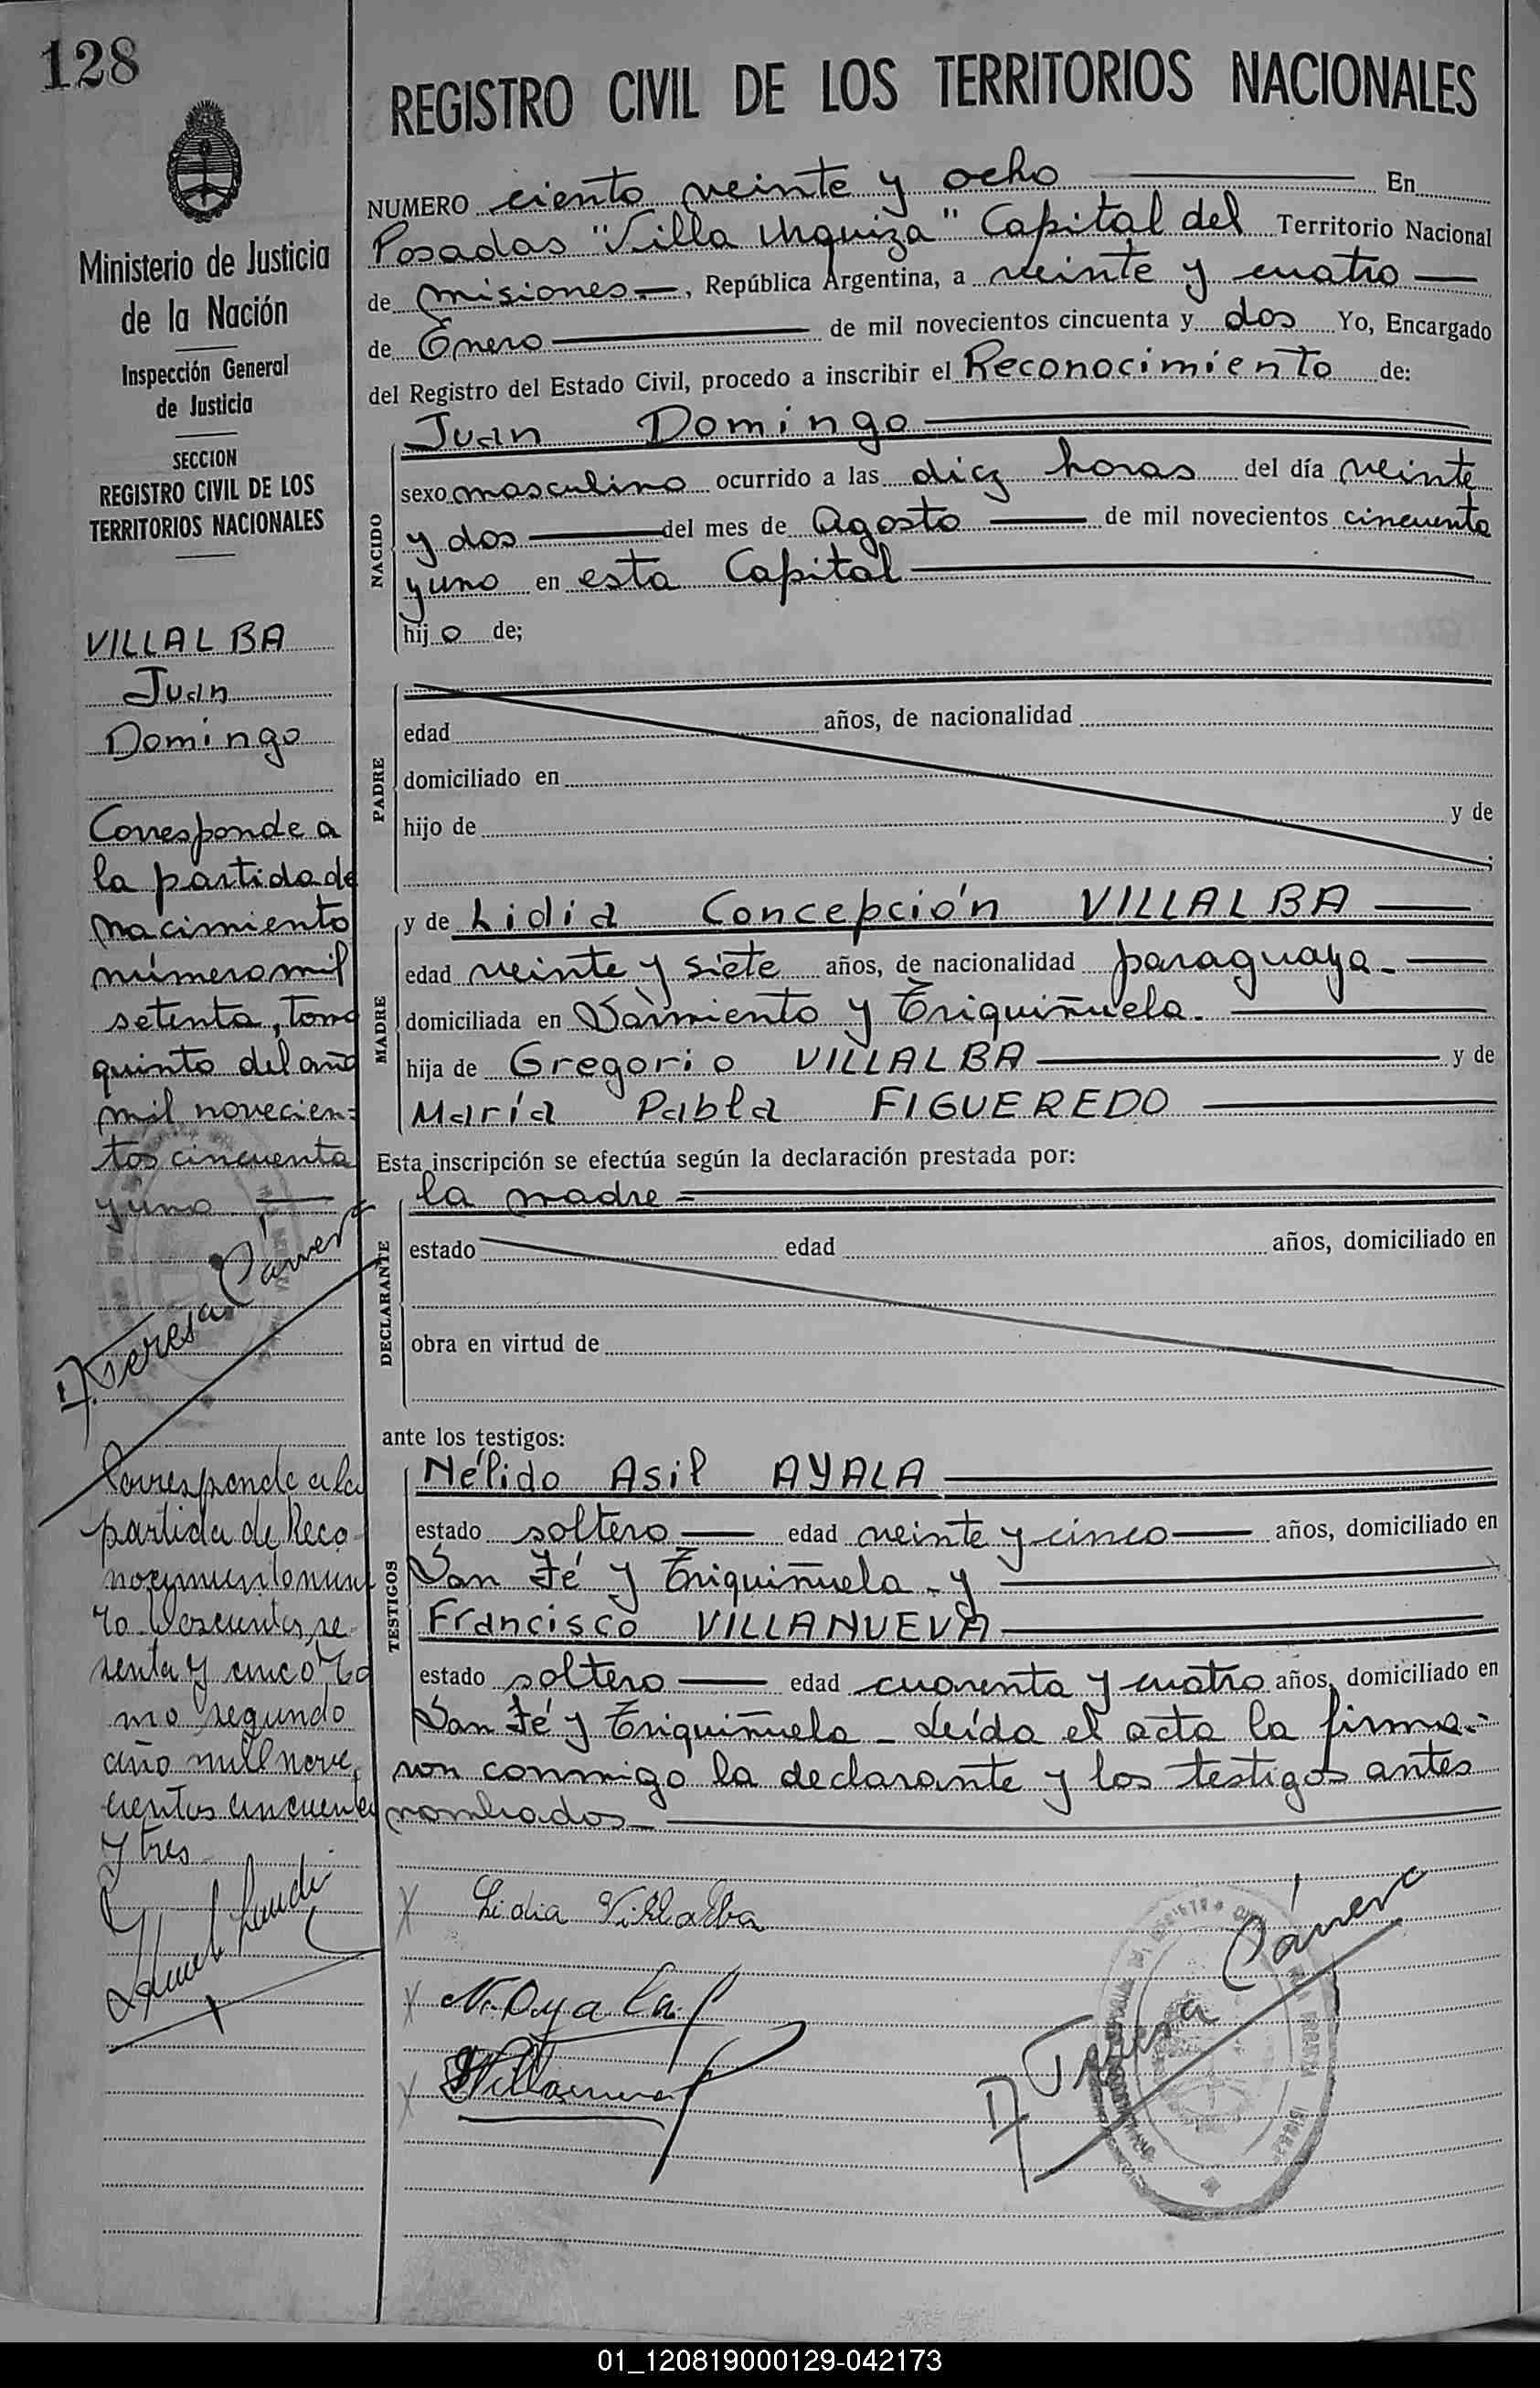 128
REGISTRO CIVIL DE LOS TERRITORIOS NACIONALES
Ministerio de Justicia
de la Nación
Inspección General
de Justicia
SECCION
REGISTRO CIVIL DE LOS
TERRITORIOS NACIONALES
VILLALBA
Juan
Domingo
Corresponde a
la partida de
nacimiento
número mil
setenta, tomo
quinto del año
mil novecien=
tos cincuenta
y uno
Teresa
Corresponde a la
partida de Reco-
nocimiento nume
ro Doscientos se
senta y cinco To
mo segundo
año mil nove
cientos cincuenta
y tres
NUMERO ciento veinte y ocho En
Posadas "Villa Urquiza" Capital del Territorio Nacional
de Misiones.-, República Argentina, a veinte y cuatro
de Enero de mil novecientos cincuenta y dos Yo, Encargado
del Registro del Estado Civil, procedo a inscribir el Reconocimiento de:
NACIDO
Juan Domingo
sexo masculino ocurrido a las diez horas del día veinte
y dos del mes de Agosto de mil novecientos cincuenta
y uno en esta Capital
hijo de;
PADRE
edad años, de nacionalidad
domiciliado en
hijo de y de
;
MADRE
y de Lidia Concepción VILLALBA
edad veinte y siete años, de nacionalidad paraguaya.-
domiciliada en Sarmiento y Triquiñuela.
hija de Gregorio VILLALBA y de
María Pabla FIGUEREDO
Esta inscripción se efectúa según la declaración prestada por:
DECLARANTE
la madre=
estado edad años, domiciliado en
obra en virtud de
ante los testigos:
TESTIGOS
Nélido Asil AYALA
estado soltero edad veinte y cinco años, domiciliado en
San Fé y Triquiñuela - y
Francisco VILLANUEVA
estado soltero edad cuarenta y cuatro años, domiciliado en
San Fé y Triquiñuela - Leída el acta la firma.-
ron conmigo la declarante y los testigos antes
nombrados
Lidia Villalba
N. Ayala
Villanueva
Teresa
01_120819000129-042173